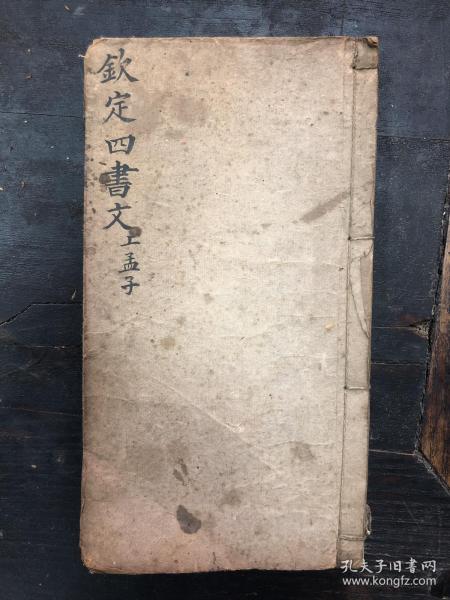 欽定四書文上孟子
孔夫子旧书网
www.kongfz.com